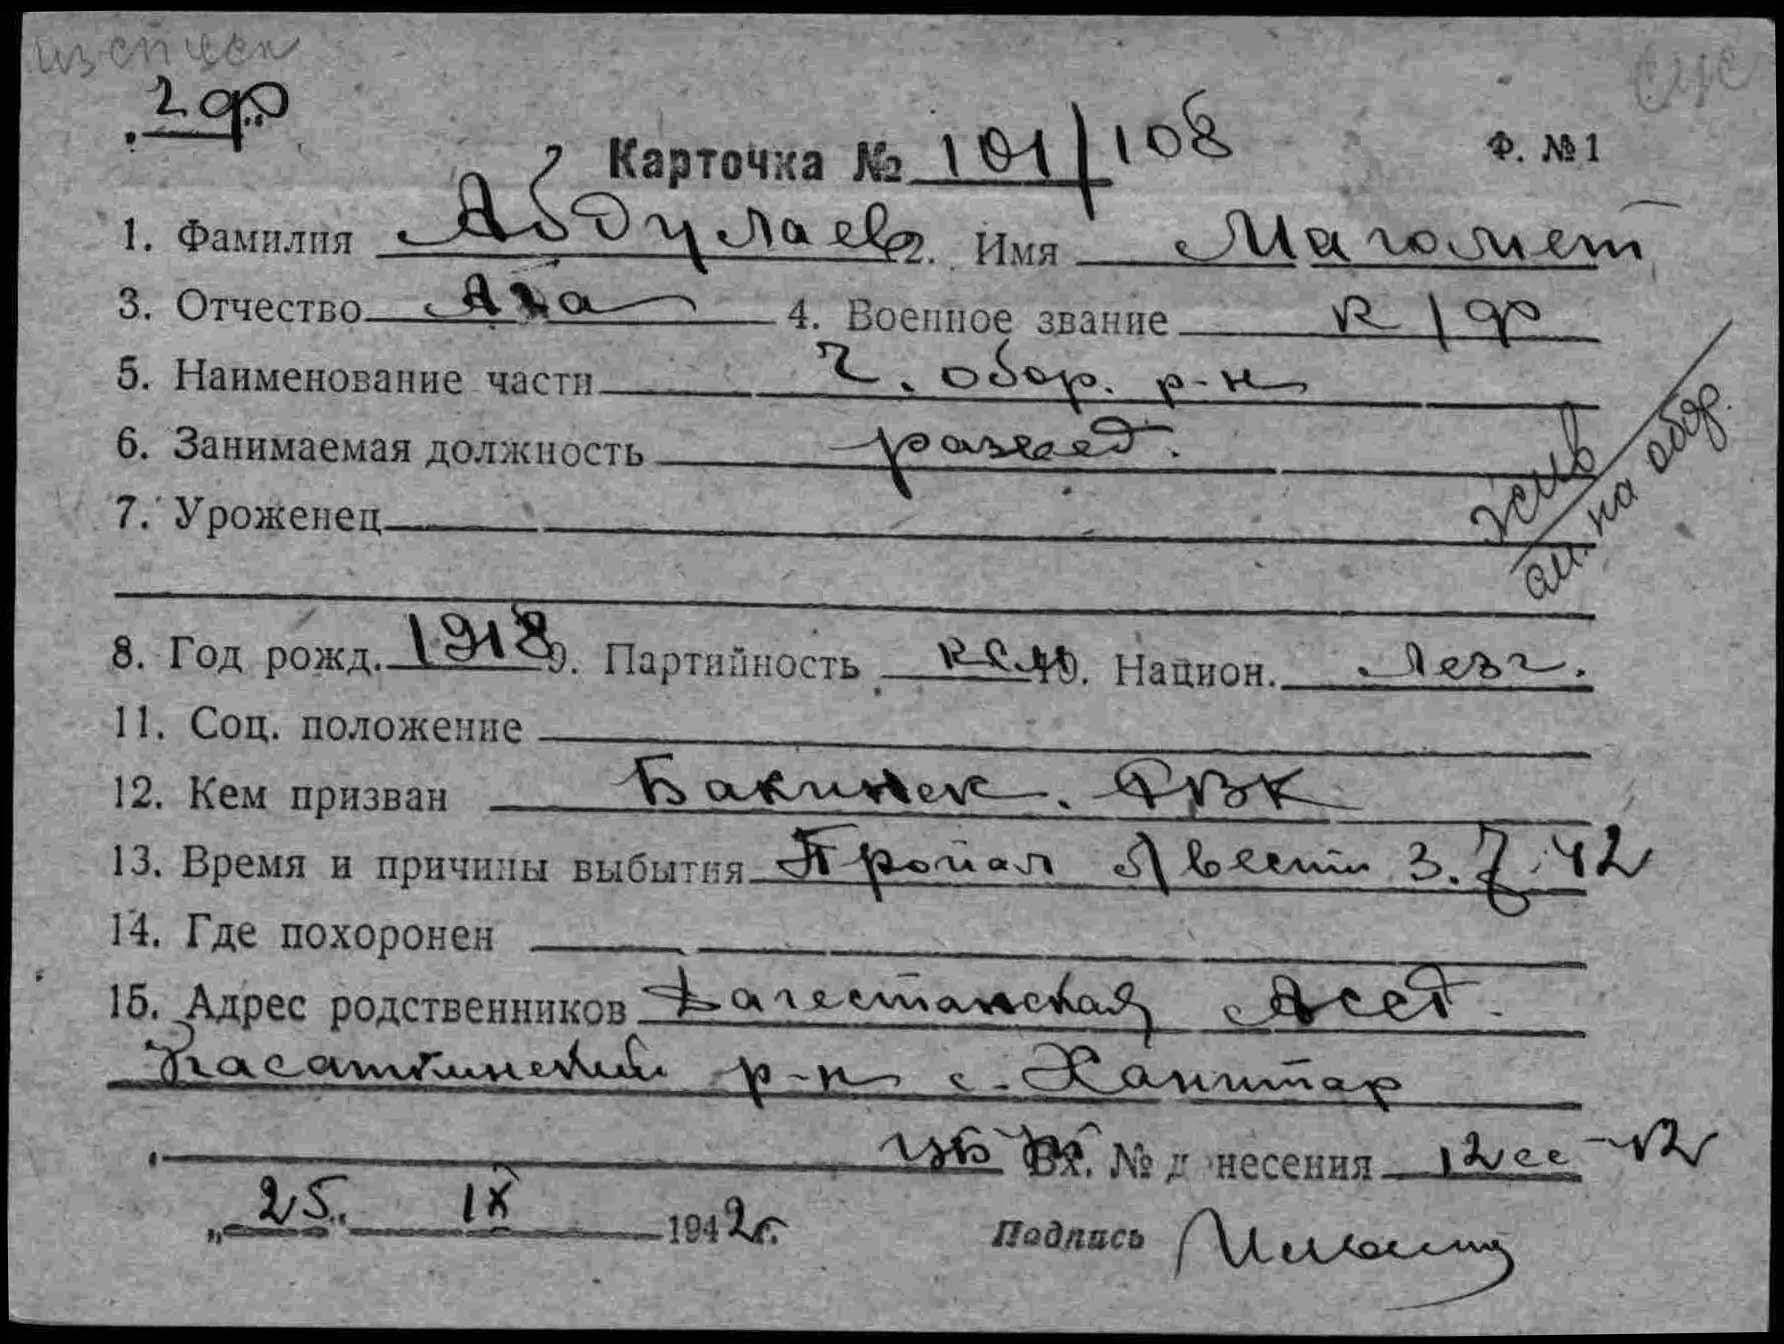 2 ф
Карточка № 101/108 Ф. № 1
1. Фамилия Абдулаев 2. Имя Магомет
3. Отчество Ага 4. Военное звание к/ф
5. Наименование части Ч. обор. р-н
6. Занимаемая должность развед.
7. Уроженец
жив
см. на обор.
8. Год рожд. 1918 9. Партийность ВЛКСМ 10. Национ. Лезг.
11. Соц. положение
12. Кем призван Бакинск. РВК
13. Время и причины выбытия Пропал б/вести 3.7.42
14. Где похоронен
15. Адрес родственников Дагестанская АССР
Касаткинский р-н с. Ханитар
Вх. № донесения 12сс-42
„25“ IX 1942г. Подпись